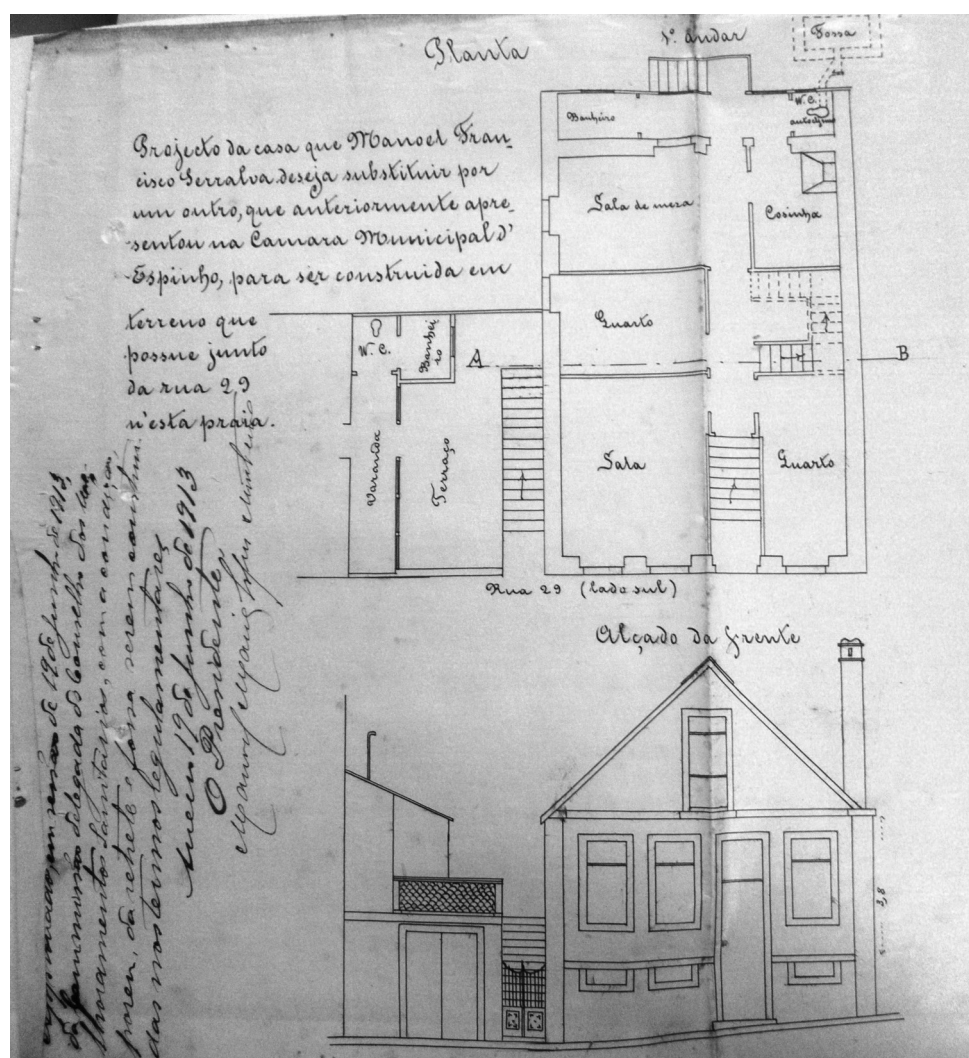 Planta
1º. Andar
Fossa
W. C.
Banheiro
Projecto da casa que Manoel Fran-
cisco Serralva deseja substituir por
um outro, que anteriormente apre-
sentou na Camara Municipal d'
Espinho, para ser construida em
terreno que
possue junto
da rua 29
n'esta praia.
Sala de meza
Cosinha
Quarto
W. C.
Banhei
ro
A
B
Varanda
Terraço
Sala
Quarto
Rua 29 (lado sul)
Alçado da frente
3,8
em sessão de 12 de junho de 1913,
da commissão delegada do Conselho dos
lhoramentos Sanitarios, com a condição,
porem, da retrete e fossa serem construi-
das nos termos regulamentares
19 de junho de 1913
O Presidente